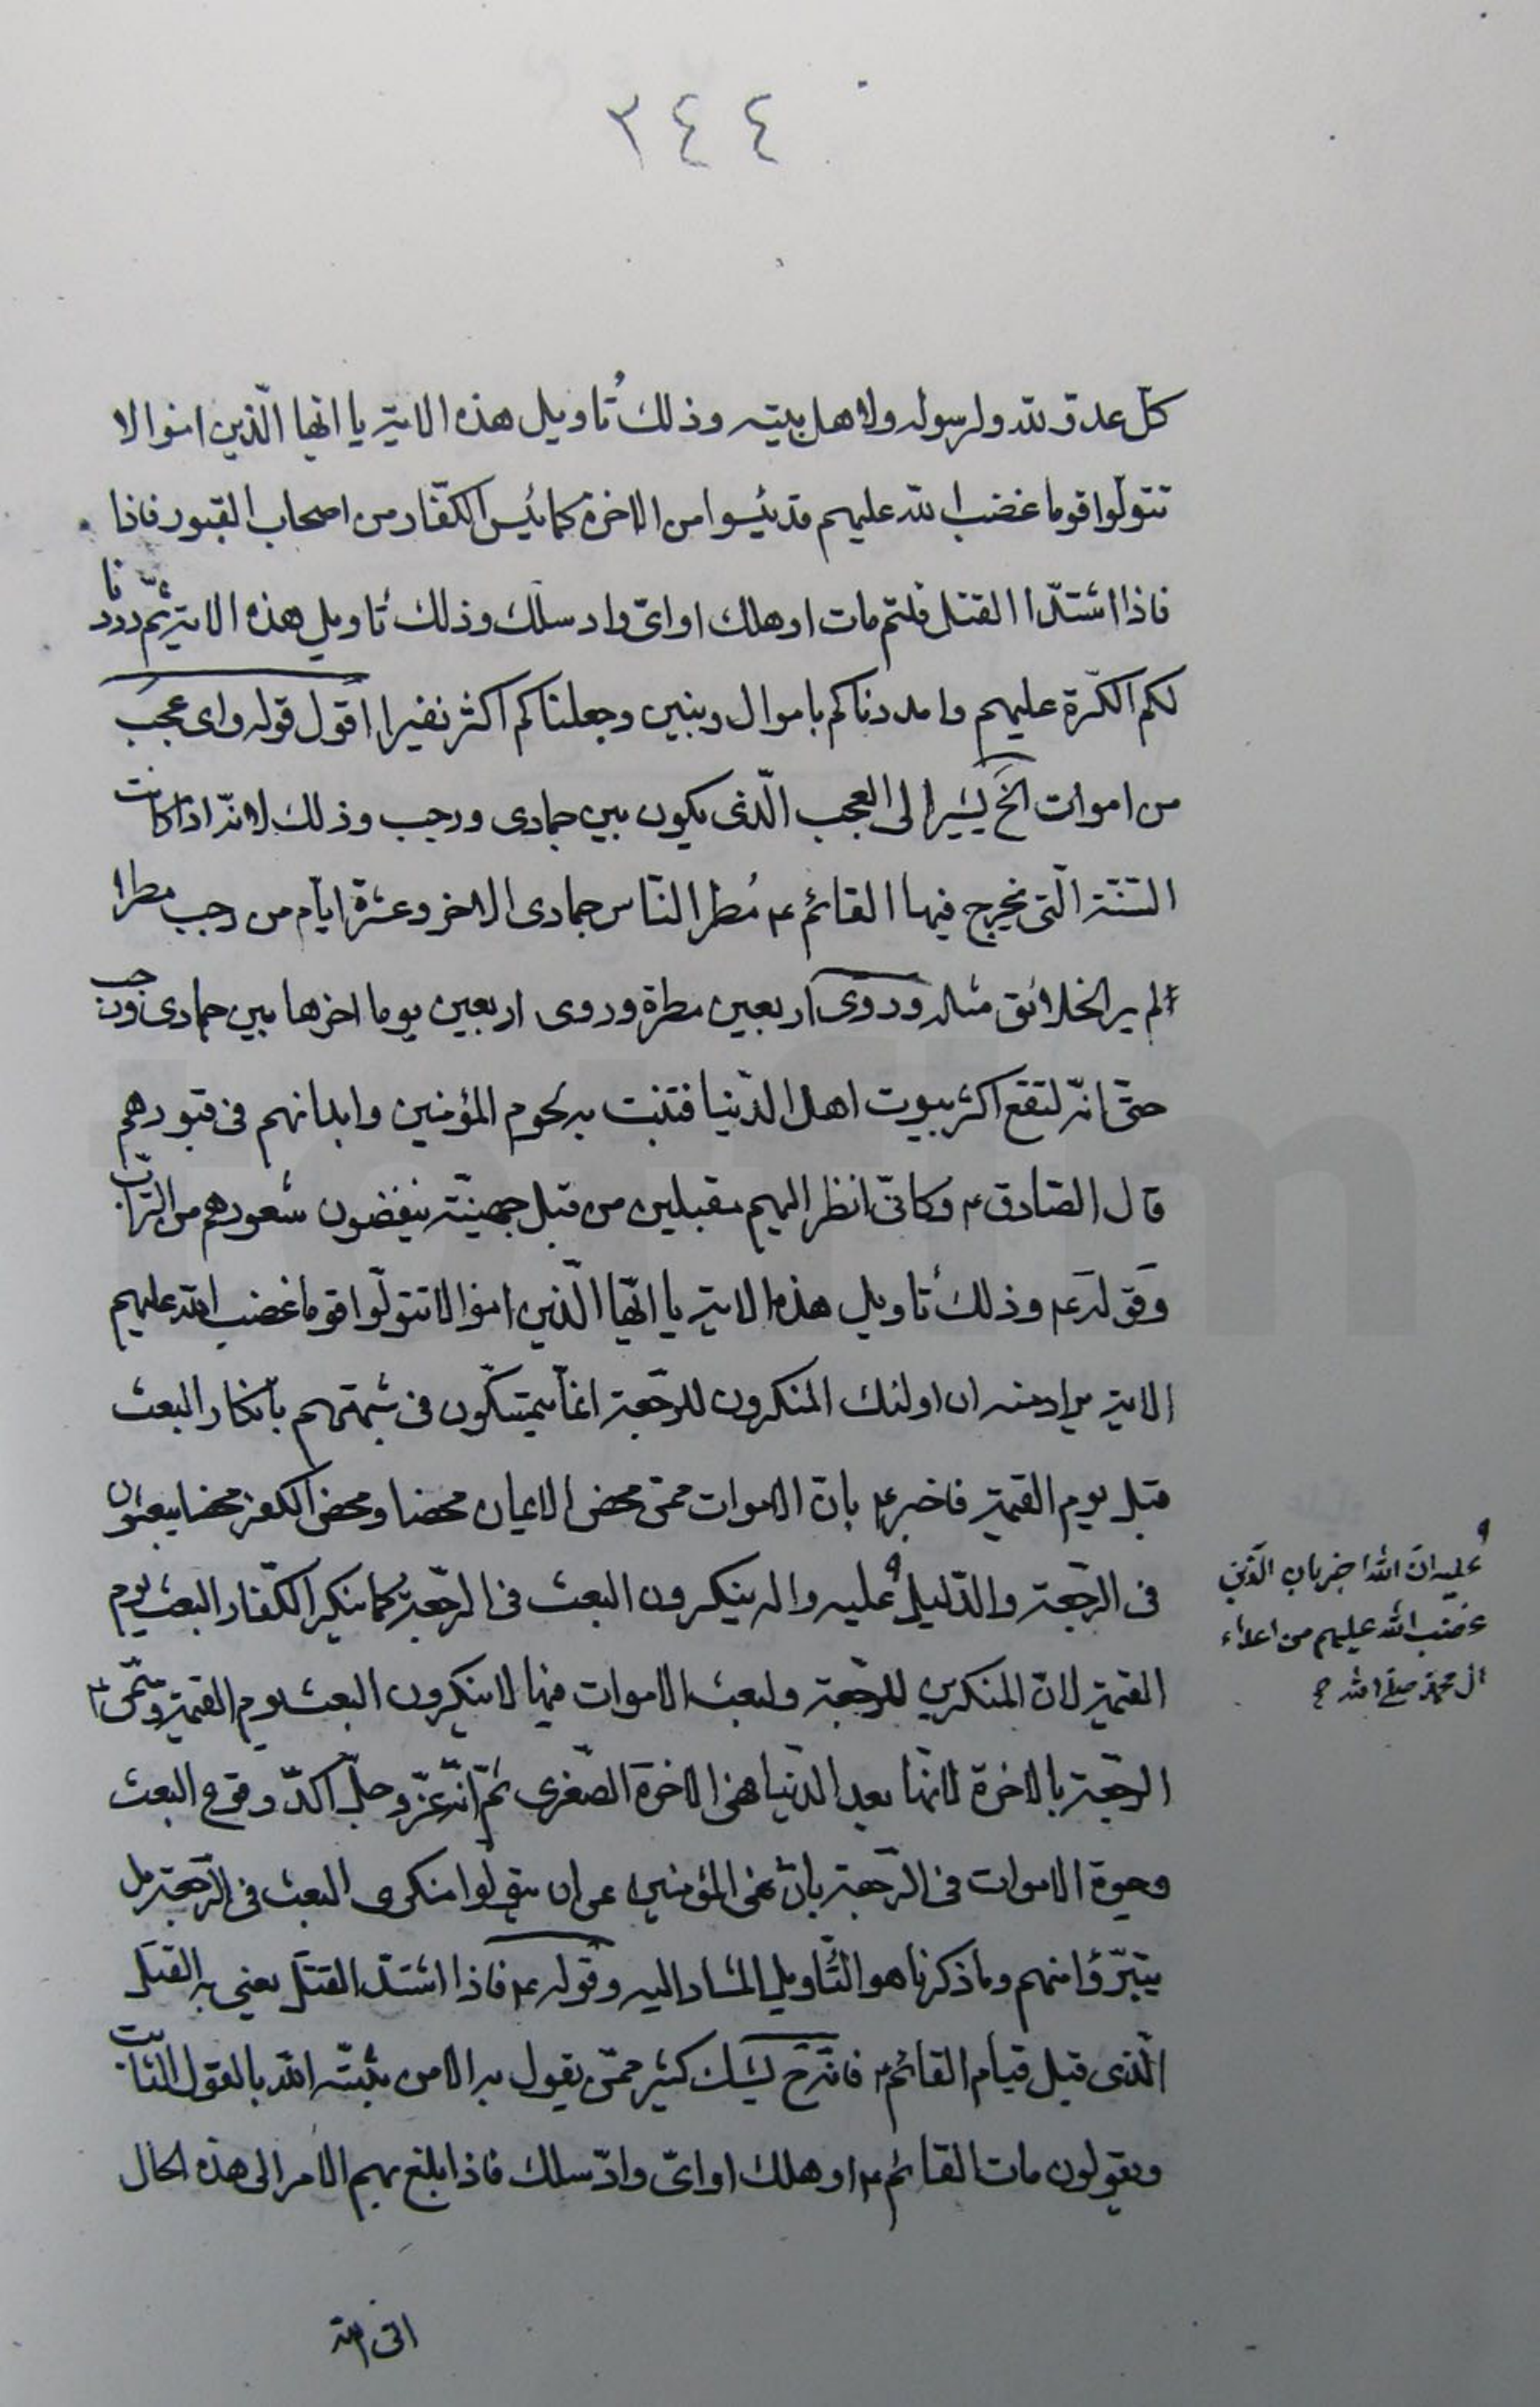 ٢٤٤
كلّ عدوّ لله ولرسوله ولاهل بيته وذلك تأويل هذه الاية يا ايها الّذين امنوا لا
تتولّوا قوما غضب الله عليهم قد يئسوا من الاخرة كما يئس الكفّار من اصحاب القبور فاذا
فاذا اشتدّ القتل قلتم مات او هلك او اىّ واد سلك وذلك تأويل هذه الاية ثمّ رددنا
لكم الكرّة عليهم وامددناكم باموال وبنين وجعلناكم اكثر نفيرا اقول قوله واى عجب
من اموات الخ يشير الى العجب الّذى يكون بين جمادى ورجب وذلك لانّه اذا كانت
السّنة الّتى يخرج فيها القائم ع مُطر النّاس جمادى الاخر وعشرة ايّام من رجب مطرا
لم ير الخلائق مثله وروى اربعين مطرة وروى اربعين يوما اخرها بين جمادى ورجب
حتّى انّه لتقع اكثر بيوت اهل الدّنيا فتنبت به لحوم المؤمنين وابدانهم فى قبورهم
قال الصّادق ع وكانّى انظر اليهم مقبلين من قبل جهينة ينفضون شعورهم من التراب
وقوله ع وذلك تأويل هذه الاية يا ايّها الّذين امنوا لا تتولّوا قوما غضب الله عليهم
الاية يراد منه ان اولئك المنكرون للرّجعة انّما يتمسّكون فى شبهتهم بانكار البعث
قبل يوم القيمة فاخبر ع بانّ الاموات ممّن محض الايمان محضا ومحض الكفر محضا يبعثون
فى الرّجعة والدّليل عليه واله ينكرون البعث فى الرّجعة كما ينكر الكفّار البعث يوم
القيمة لانّ المنكرين للرّجعة ولبعث الاموات فيها لا ينكرون البعث يوم القيمة وسمّى ع
الرّجعة بالاخرة لانّها بعد الدّنيا فهى الاخرة الصّغرى ثمّ انّه عزّ وجلّ اكدّ وقوع البعث
وحيوة الاموات فى الرّجعة بان نهى المؤمنين عن ان يتولوا منكرى البعث فى الرّجعة بل
يتبرّؤا منهم وما ذكرناه هو التّأويل المشار اليه وقوله ع فاذا اشتدّ القتل يعنى به القتل
الّذى قبل قيام القائم ع فانّه ح يشك كثير ممّن يقول به الا من يثبّته الله بالقول الثابت
ويقولون مات القائم ع او هلك او اىّ وادّ سلك فاذا بلغ بهم الامر الى هذه الحال
عليه انّ الله اخبر بان الّذين
غضب الله عليهم من اعداء
ال محمّد صلّى الله
اتى الله